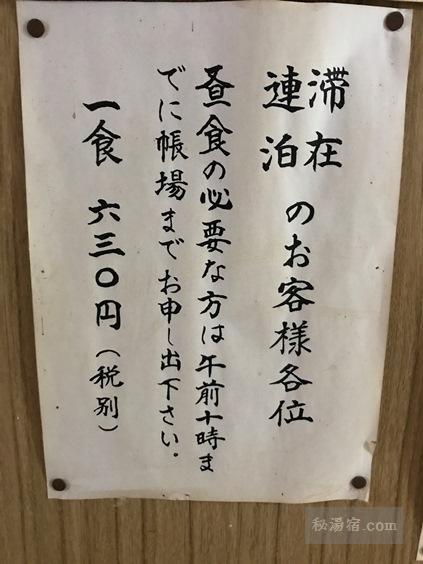 滞在
連泊
のお客様各位
昼食の必要な方は午前十時ま
でに帳場までお申し出下さい。
一食 六三〇円（税別）
秘湯宿.com